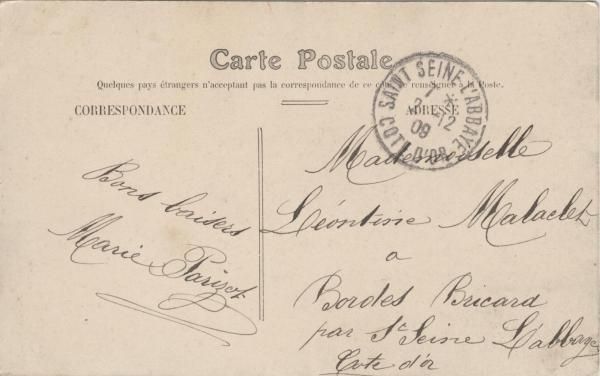 Carte Postale
Quelques pays étrangers n'acceptent pas la correspondance de ce côté, se renseigner à la Poste.
CORRESPONDANCE
ADRESSE
SAINT SEINE L'ABBAYE
7 *
2 -12
09
COTE D'OR
Bons baisers
Marie Parizot
Mademoiselle
Léontine Malaclet
a
Bordes Bricard
par St Seine L'abbaye
Cote d'or